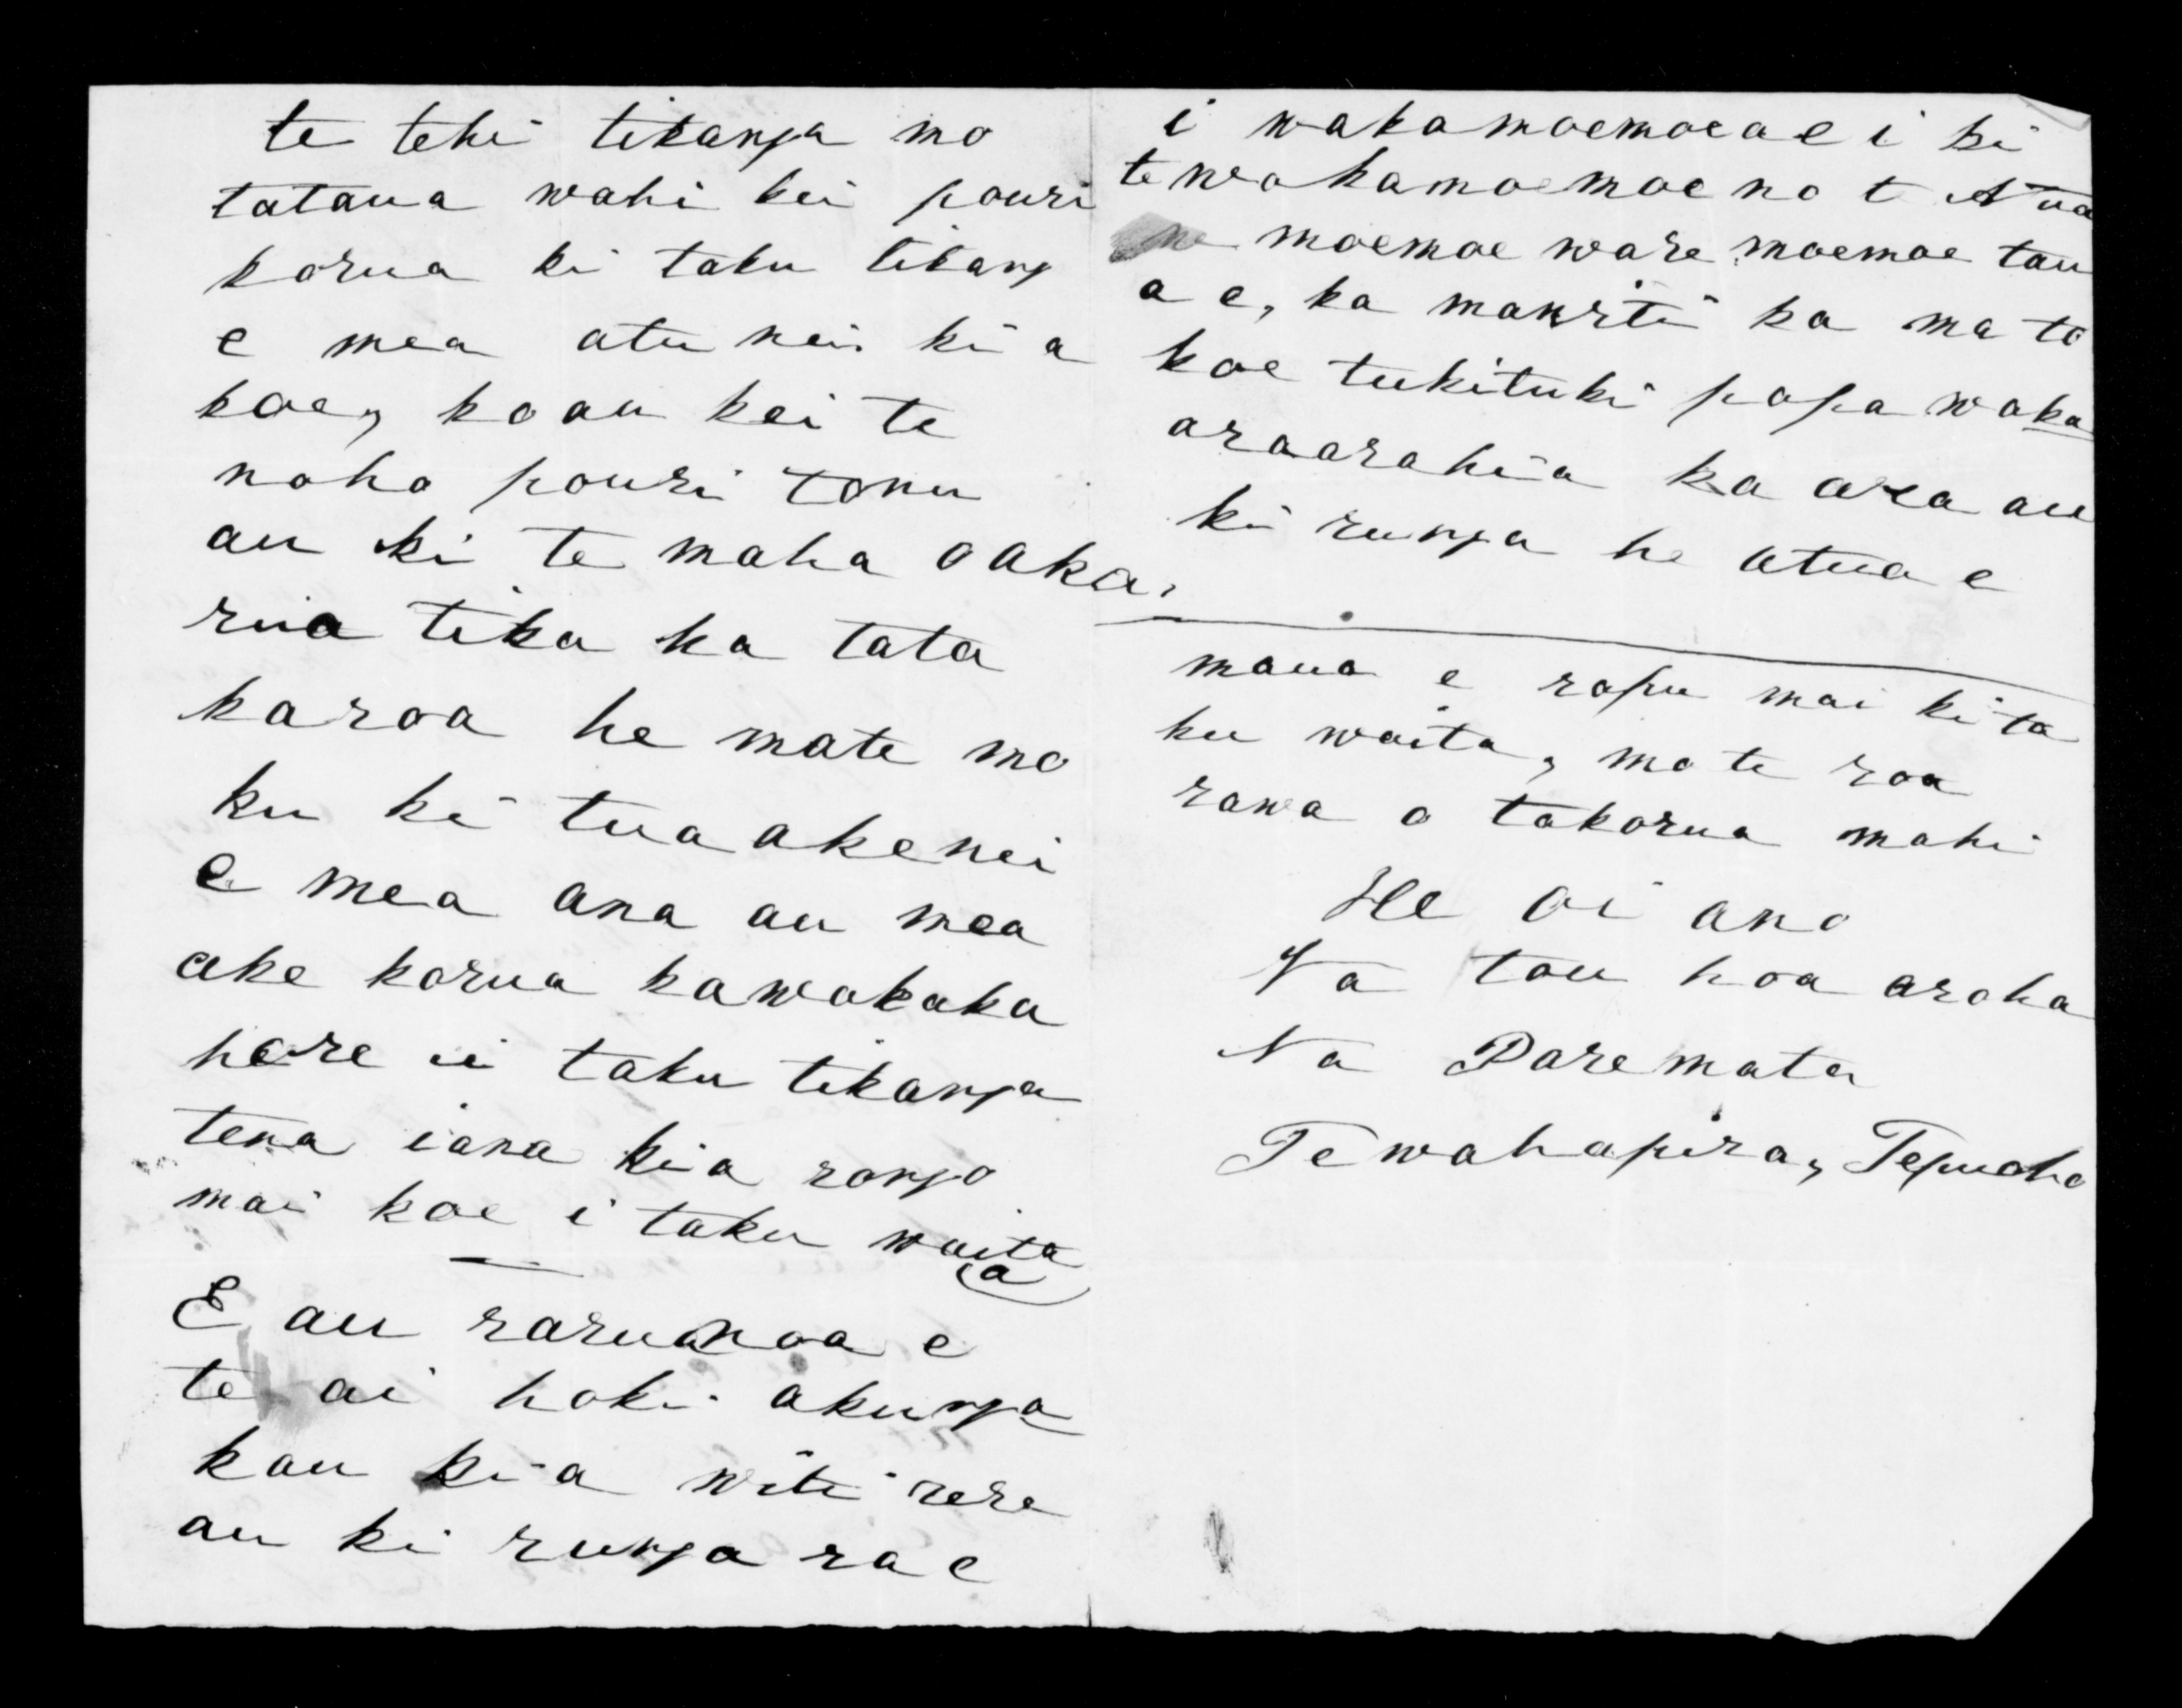 te tehi tikanga mo
tataua wahi kei pouri
korua ki taku tikang
e mea atu nei ki a
koe, ko au kei te
noho pouri tonu
au ki te maha o aka,
rua tika ka tata
ka roa he mate mo
ku ki tua ake nei
e mea ana au mea
ake korua ka wakaka
hore i taku tikanga
tena iana kia rongo
mai koe i taku waita
a
E au raru noa e
te ai hoki akunga
kau kia witi rere
au ki runga ra e
i wakamoemoea e i ki
te wakamoemoe no t Atua
moemoe ware moemoe tau
a e, ka mawiti ka ma to
koe tukituki papa waka
araarahia ka ara au
ki runga he atua e
maua e rapu mai ki ta
ku waita, mo te roa
rawa o takorua mahi
He oi ano
Na tou hoa aroha
Na Paremata
Te wahapira, Tepuoho